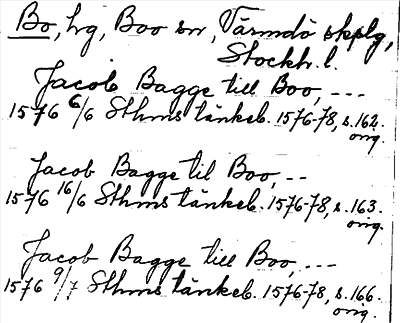 Bo, hg, Boo sn, Värmdö skplg,
Stockh. l.
Jacob Bagge till Boo, ---
1576 6/6 Sthms tänkeb. 1576-78, s. 162.
orig.
Jacob Bagge til Boo, --
1576 16/6 Sthms tänkeb. 1576-78, s. 163.
orig.
Jacob Bagge till Boo, ---
1576 9/7 Sthms tänkeb. 1576-78, s. 166.
orig.